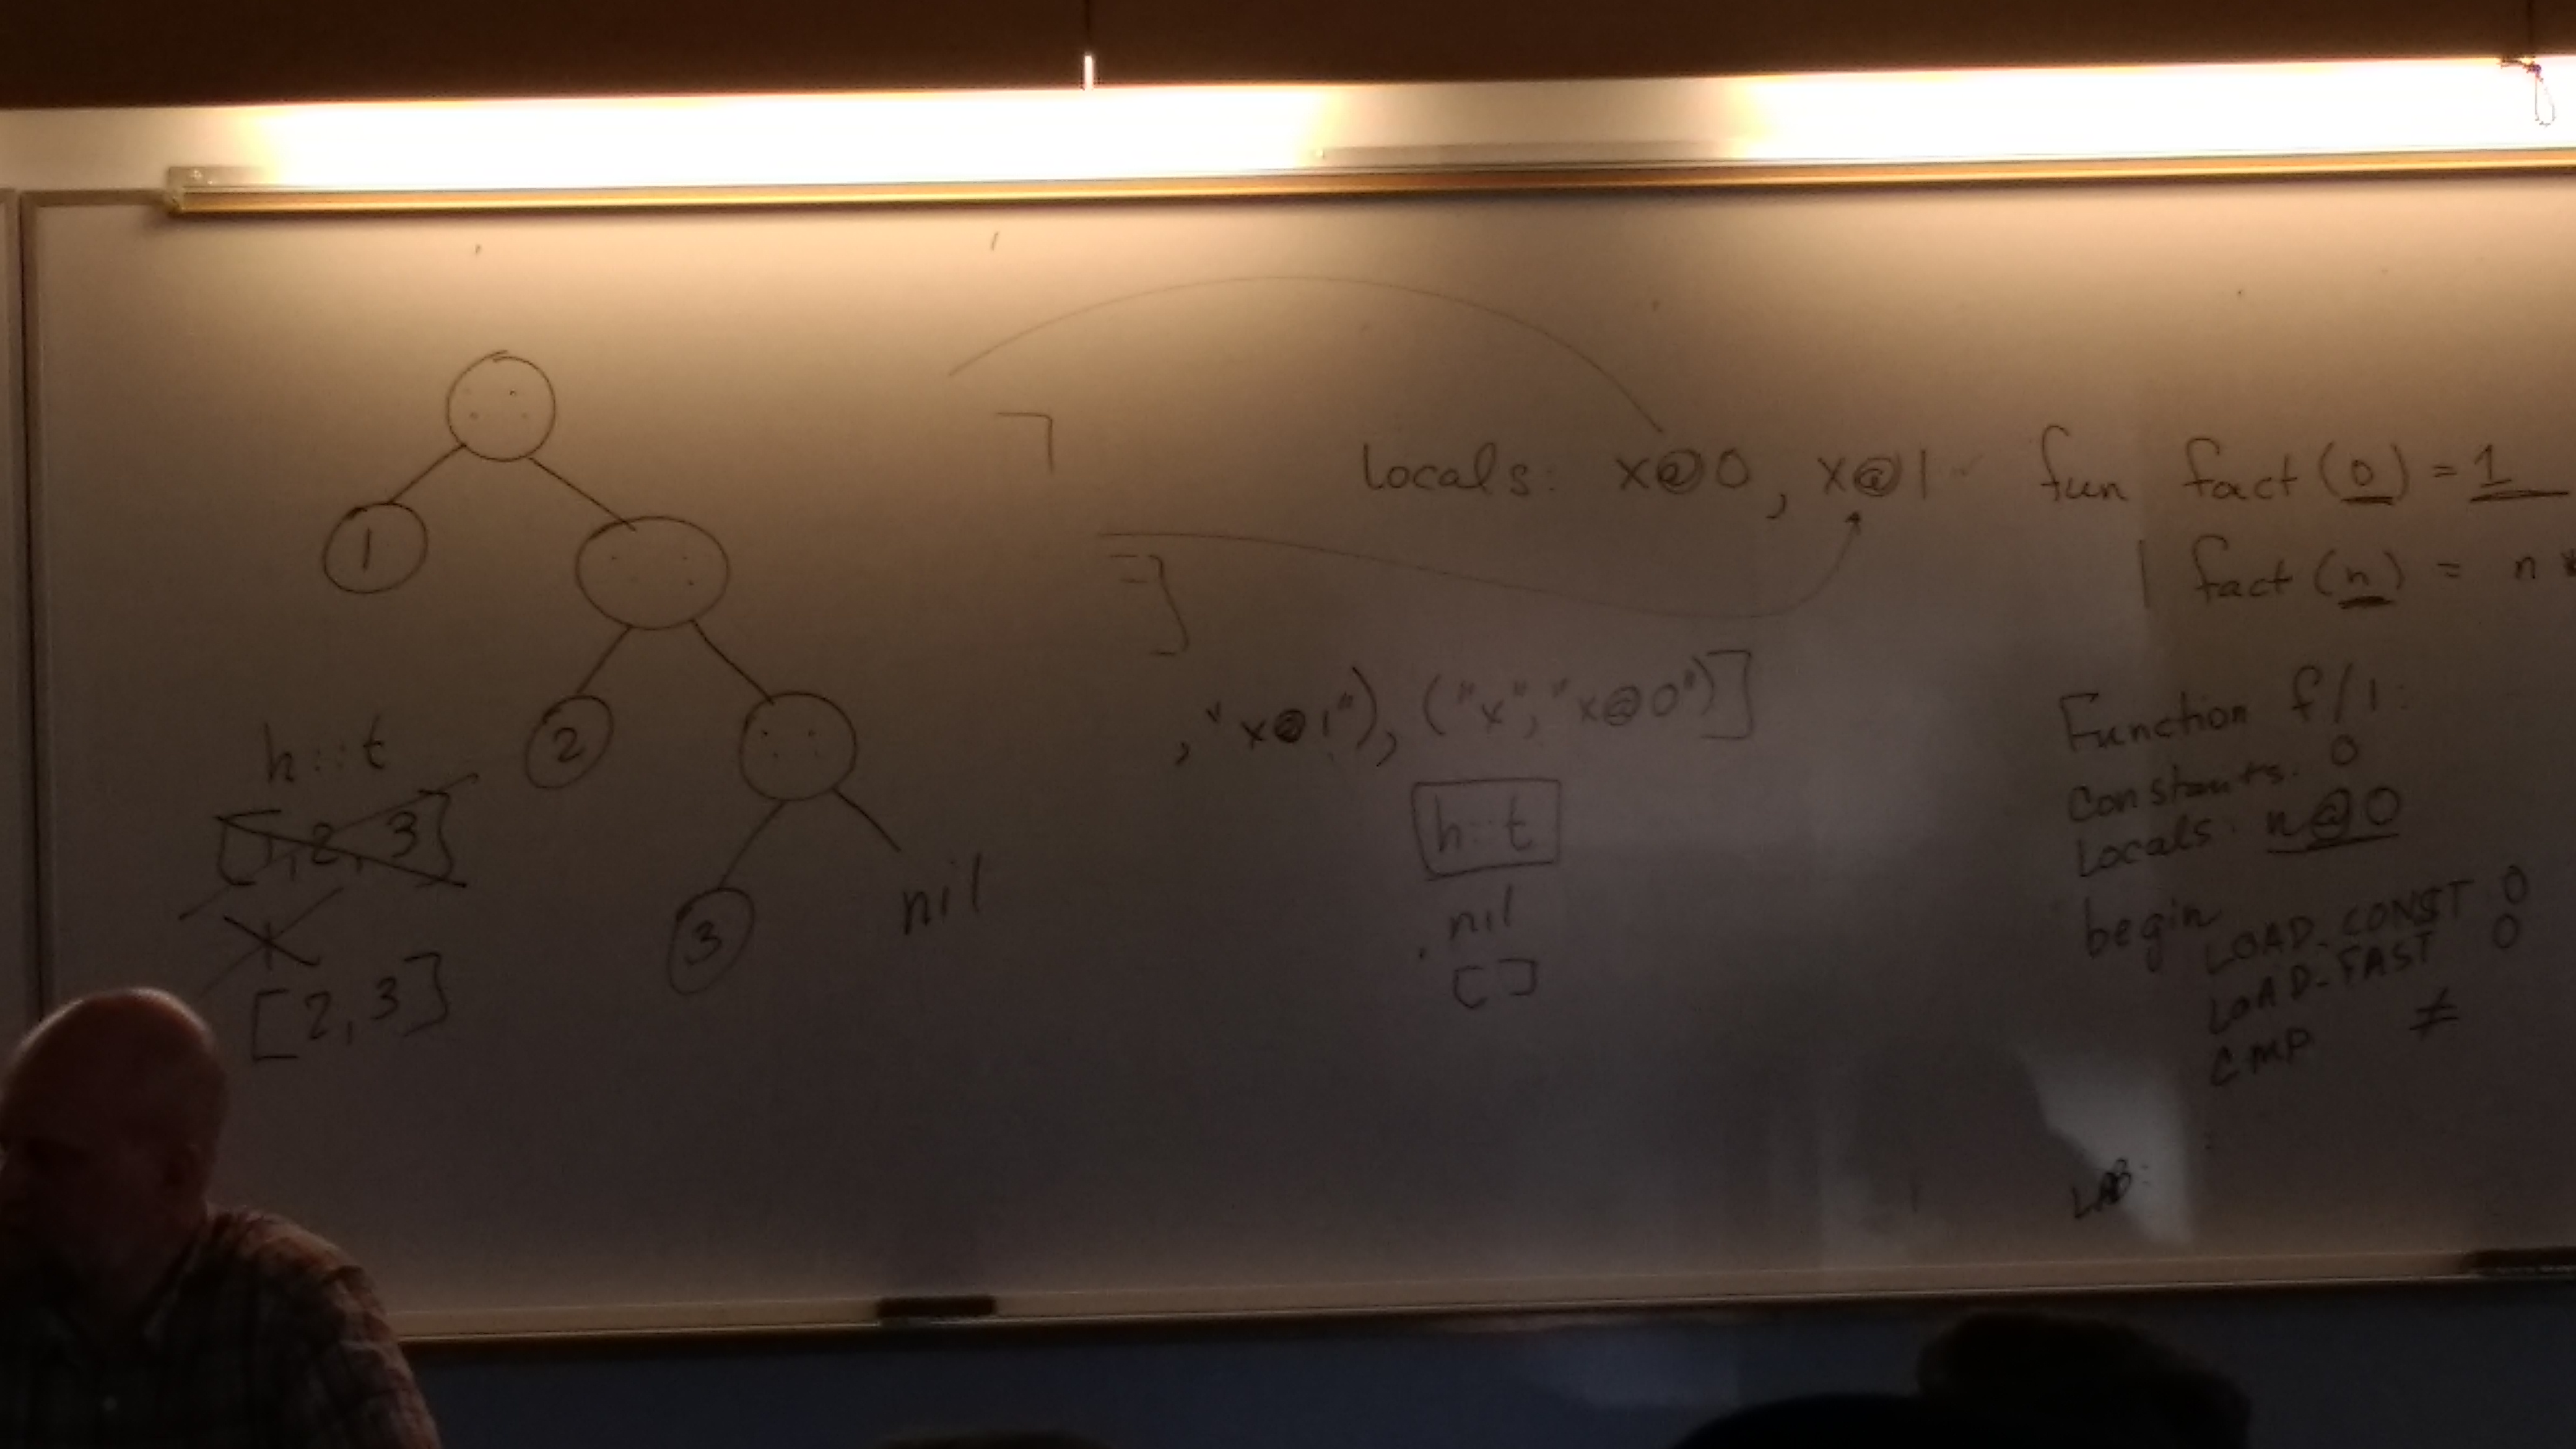 : :
1
: :
2
: :
3
nil
h::t
[1, 2, 3]
[2, 3]
]
Locals: x@0, x@1
, "x@1"), ("x", "x@0")]
h::t
nil
[]
fun fact (0) = 1
| fact (n) = n *
Function f/1:
Constants: 0
Locals: n@0
begin
LOAD_CONST 0
LOAD_FAST 0
CMP ≠
LAB: